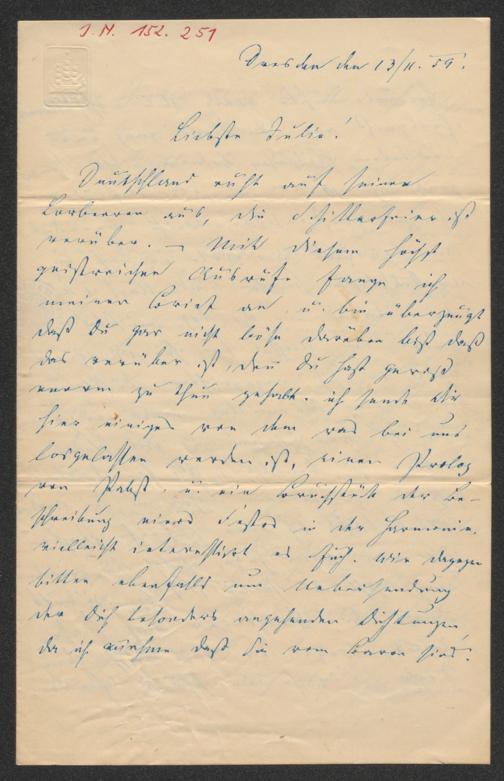 J.N. 152.251
Dresden den 13/11. 59.
Liebste Julie!
Deutschland ruht auf seinen
Lorbeeren aus, die Schillerfeier ist
vorüber. – Mit diesem höchst
geistreichen Ausrufe fange ich
meinen Brief an u. bin überzeugt
daß Du gar nicht böse darüber bist daß
das vorüber ist, denn Du hast gewiß
enorm zu thun gehabt. ich sende Dir
hier einiges von dem was bei uns
losgelassen worden ist, einen Prolog
von Pabst, u. ein Bruchstück der Be-
schreibung eines Festes in der Harmonie.
vielleicht interessirt es Euch. Wir dagegen
bitten ebenfalls um Uebersendung
der Dich besonders angehenden Dichtungen,
da ich annehme daß sie vom Baron sind.